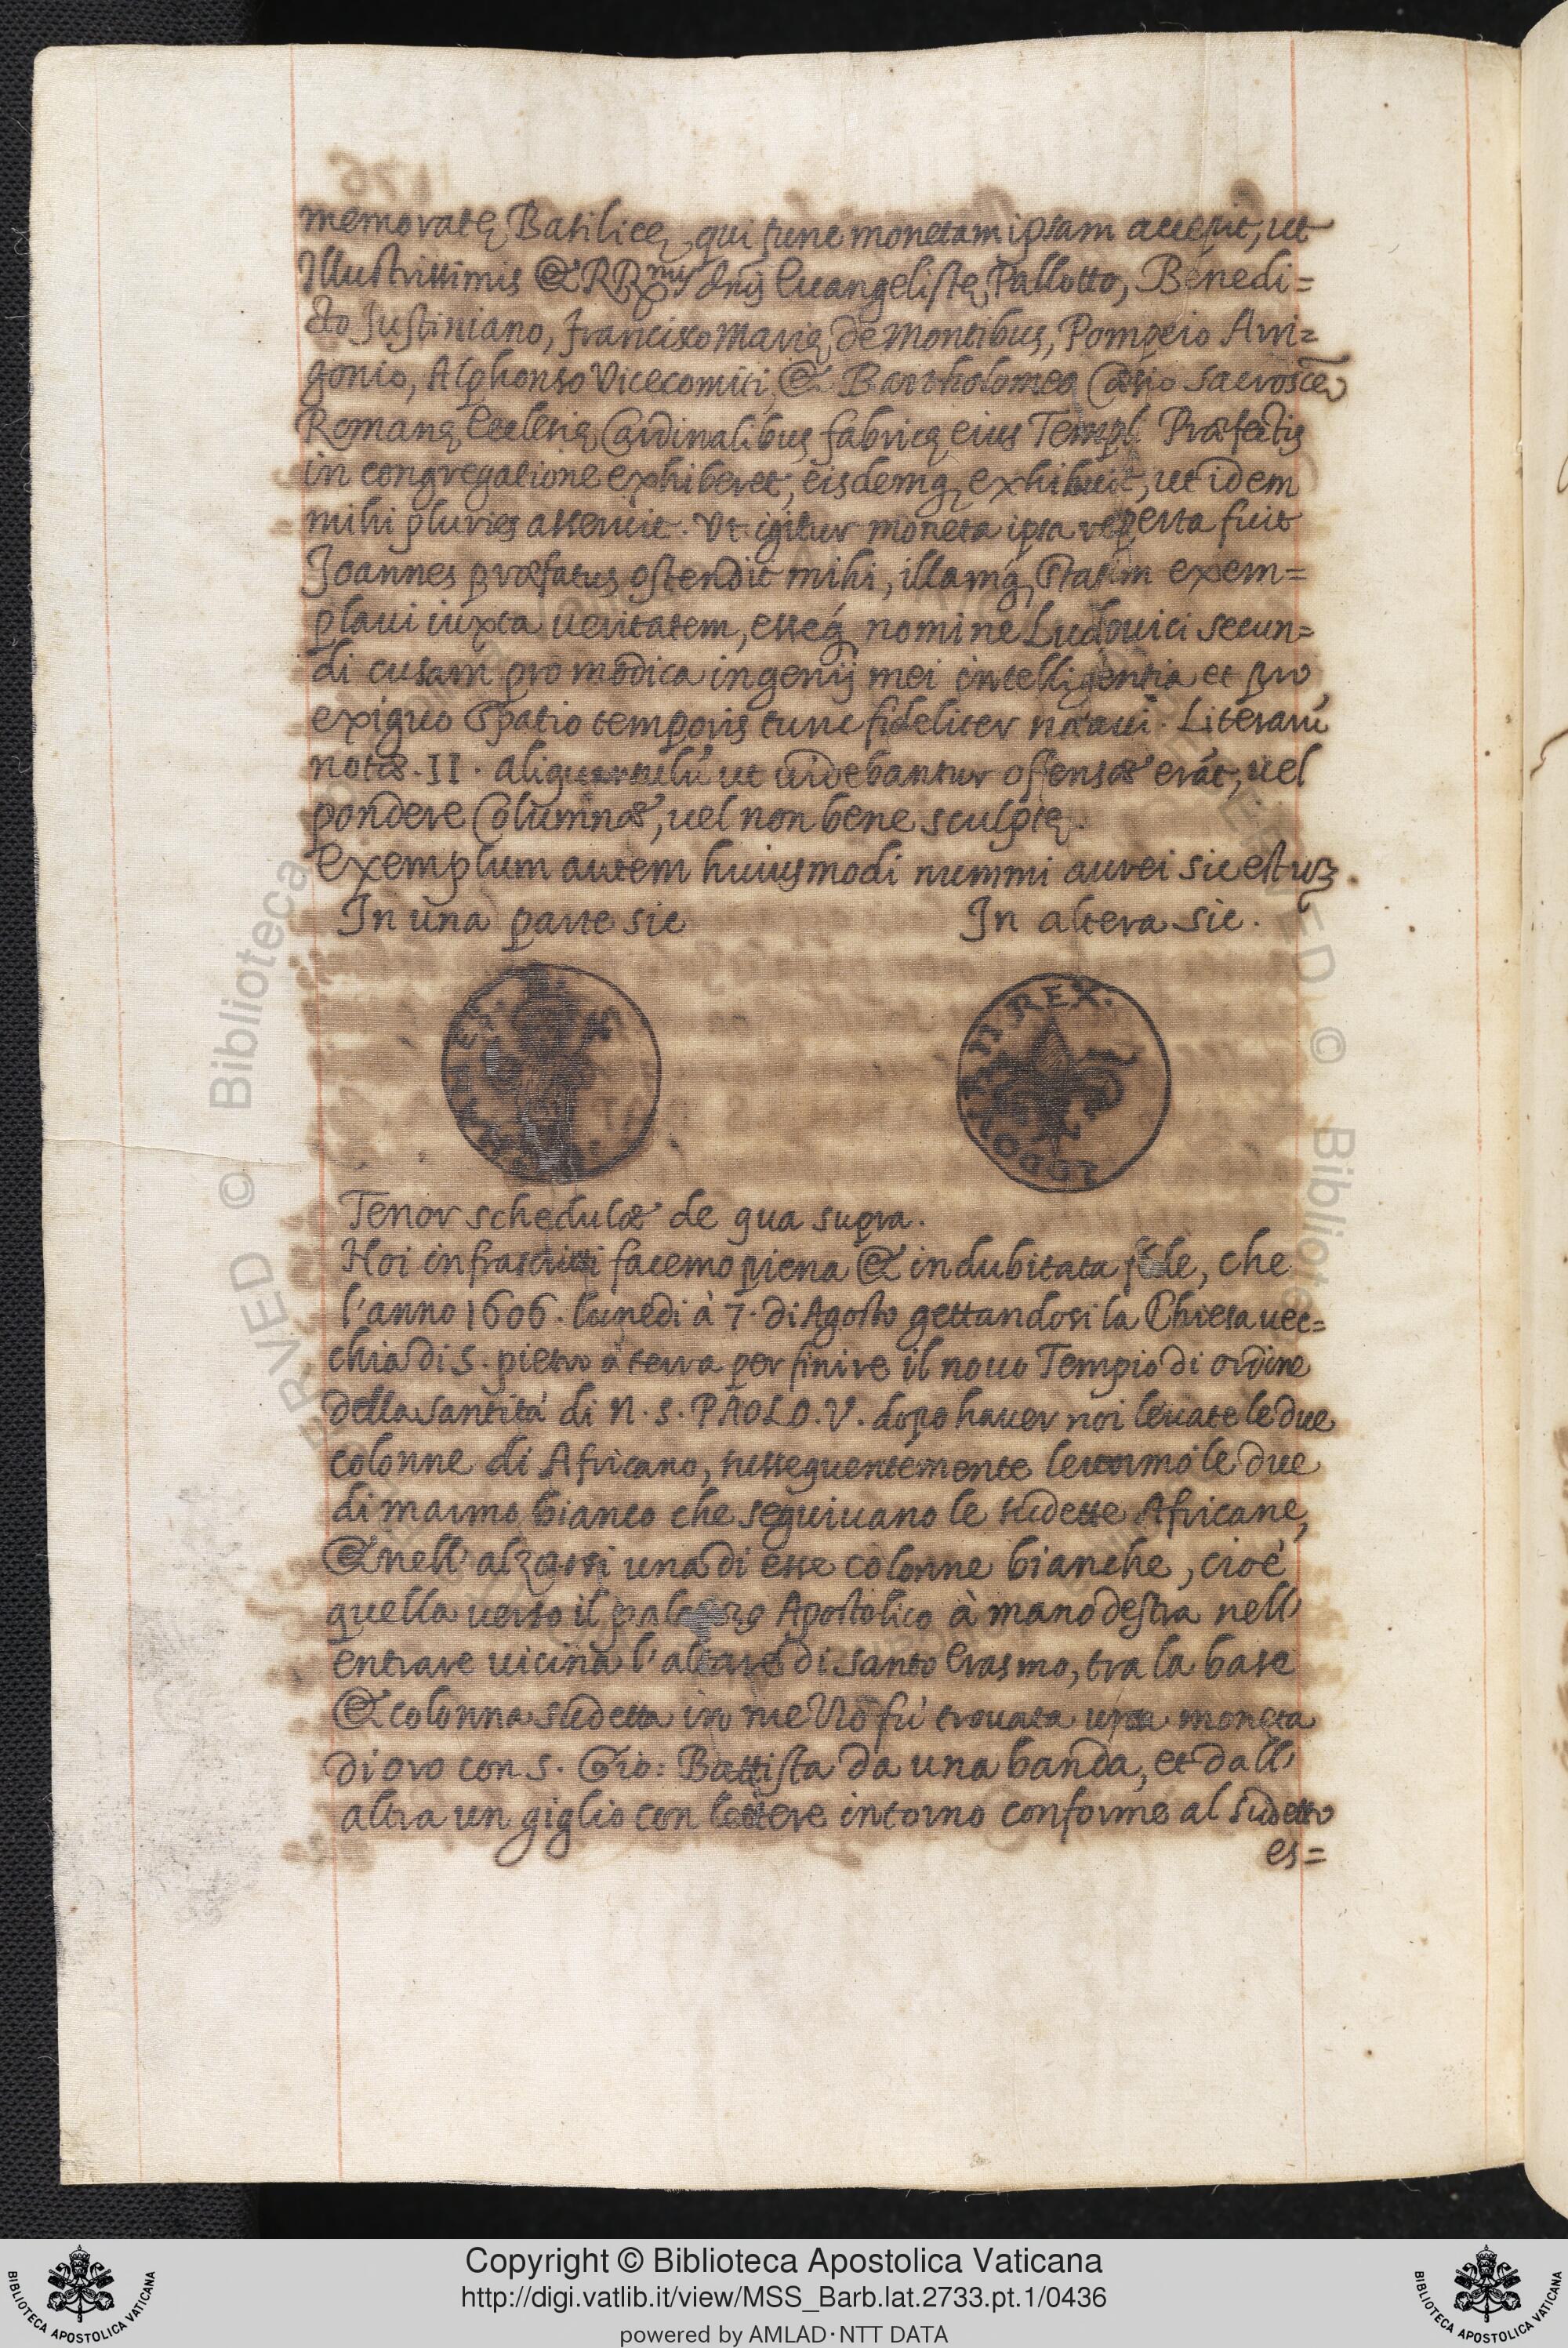 memoratę Basilicę, qui tunc monetam ipsam accepit, ut
Illustrissimis & RRmis dnis Euangelistę Pallotto, Benedi=
cto Justiniano, Francisco Marię de Montibus, Pompeio Arri=
gonio, Alphonso Vicecomiti, & Bartholomeo Cæsio sacrosctę
Romanę Ecclesię Cardinalibus fabricę eius Templi Præfectis
in congregatione exhiberet, eisdemq exhibuit, ut idem
mihi pluries asseruit. Vt igitur moneta ipsa reperta fuit
Joannes præfatus ostendit mihi, illamq statim exem=
plaui iuxta ueritatem, esseq nomine Ludouici secun=
di cusam pro modica ingenij mei intelligentia et pro
exiguo spatio temporis tunc fideliter notaui. Literarū
notæ. II. aliquantulū ut uidebantur ofensæ erāt, uel
pondere Columnæ, uel non bene sculptę.
Exemplum autem huiusmodi nummi aurei sic est uz.
In una parte sic
In altera sic.
LODOVI II REX.
Tenor schedulæ de qua supra.
Noi infrascritti facemo piena & indubitata fede, che
l'anno 1606. lunedi à 7. di Agosto gettandosi la Chiesa uec=
chia di S. pietro à terra per finire il nouo Tempio di ordine
della santità di N. S. PAOLO. V. dopo hauer noi leuate le due
colonne di Africano, susseguentemente leuammo le due
di marmo bianco che seguiuano le sudette Africane,
& nell' alzarsi una di esse colonne bianche, cioè
quella uerso il palazzo Apostolico à mano destra nell'
entrare uicina l'altare di santo Erasmo, tra la base
& colonna sudetta in mezzo fù trouata una moneta
di oro con S. Gio: Battista da una banda, et dall'
altra un giglio con lettere intorno conforme al sudetto
es=
© Biblioteca
RVED ©
© Biblioteca
Copyright © Biblioteca Apostolica Vaticana
http://digi.vatlib.it/view/MSS_Barb.lat.2733.pt.1/0436
powered by AMLAD·NTT DATA
BIBLIOTECA APOSTOLICA VATICANA
BIBLIOTECA APOSTOLICA VATICANA